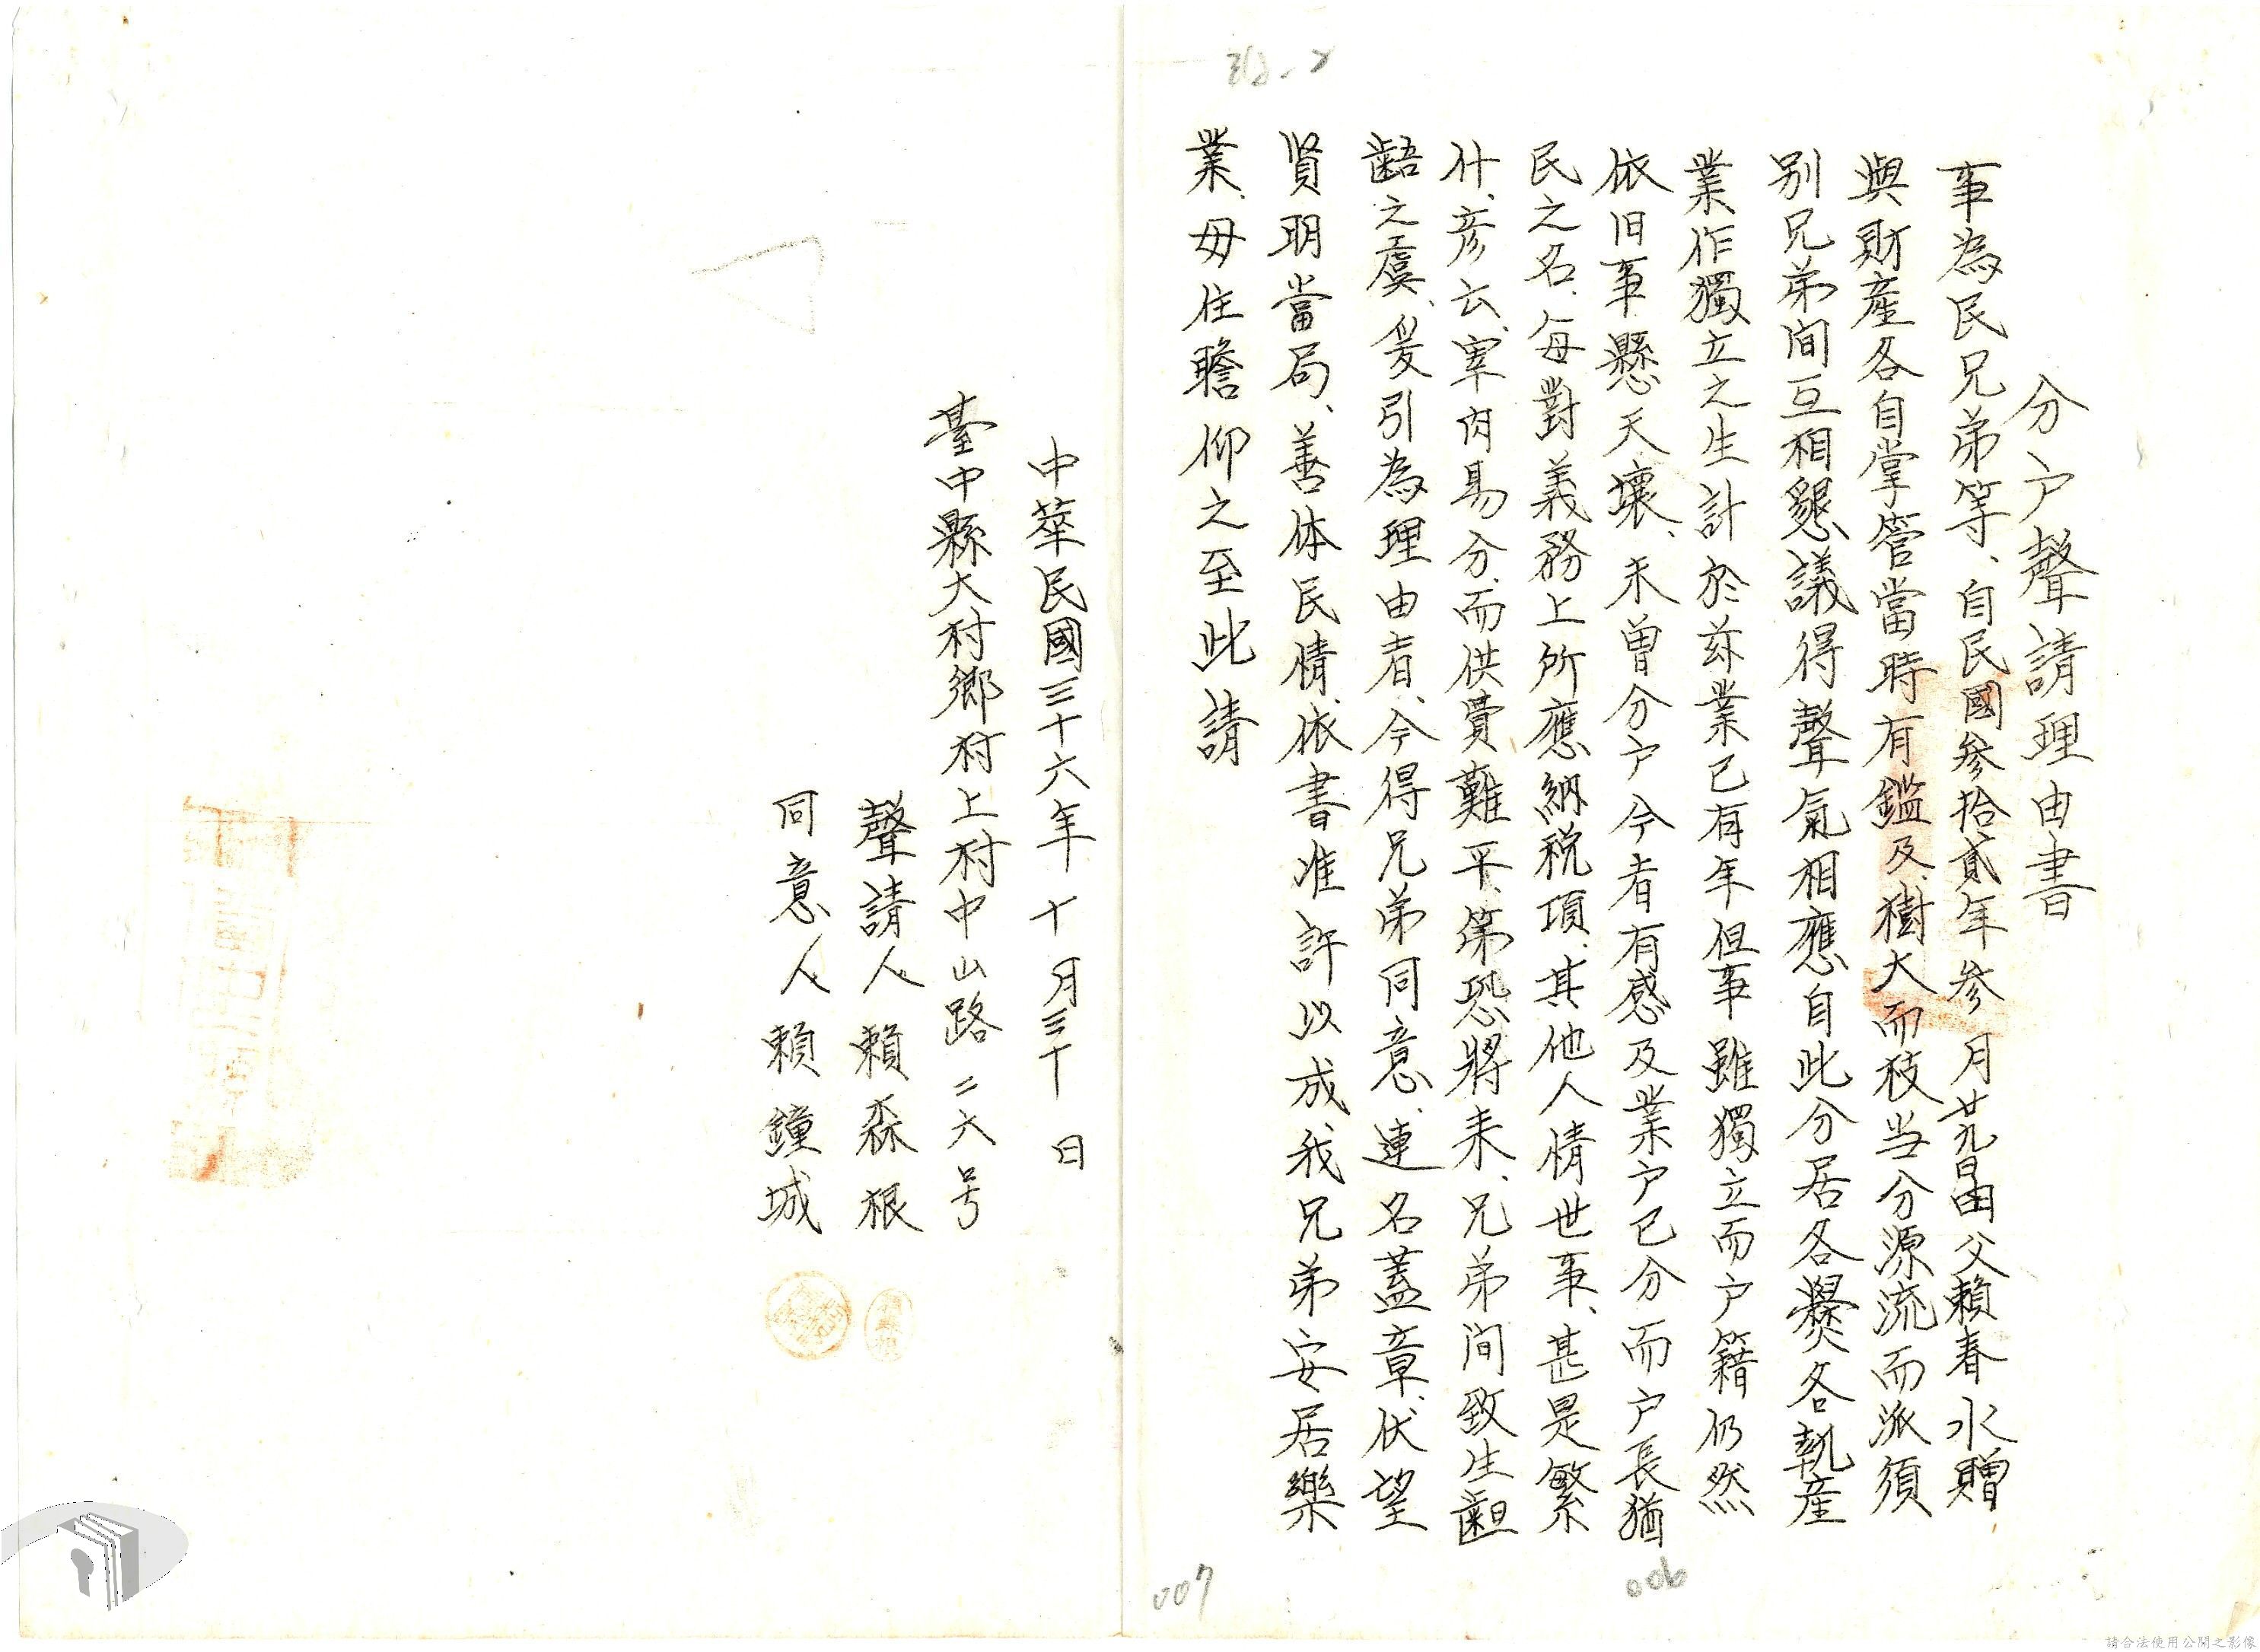 分户聲請理由書
事為民兄弟等、自民國參拾貳年參月廿九日由父賴春水贈
與財產各自掌管當時有鑑及樹大而枝当分源流而派須
別兄弟間互相懇議得聲氣相應自此分居各爨各執產
業作獨立之生計於茲業已有年但事雖獨立而户籍仍然
依旧事懸天壤、未曾分户今者有感及業户已分而户長猶
民之名、每對義務上所應納稅項、其他人情世事、甚是繁
什、彥云、宰肉易分、而供費難平、第恐將来、兄弟間致生齟
齬之虞、爰引為理由者、今得兄弟同意、連名蓋章、伏望
賢明當局、善体民情、依書准許以成我兄弟安居樂
業、毋住瞻仰之至此請
中華民國三十六年十月三十日
臺中縣大村鄉村上村中山路二六号
聲請人 賴森根
同意人 賴鐘城
006
007
請合法使用公開之影像